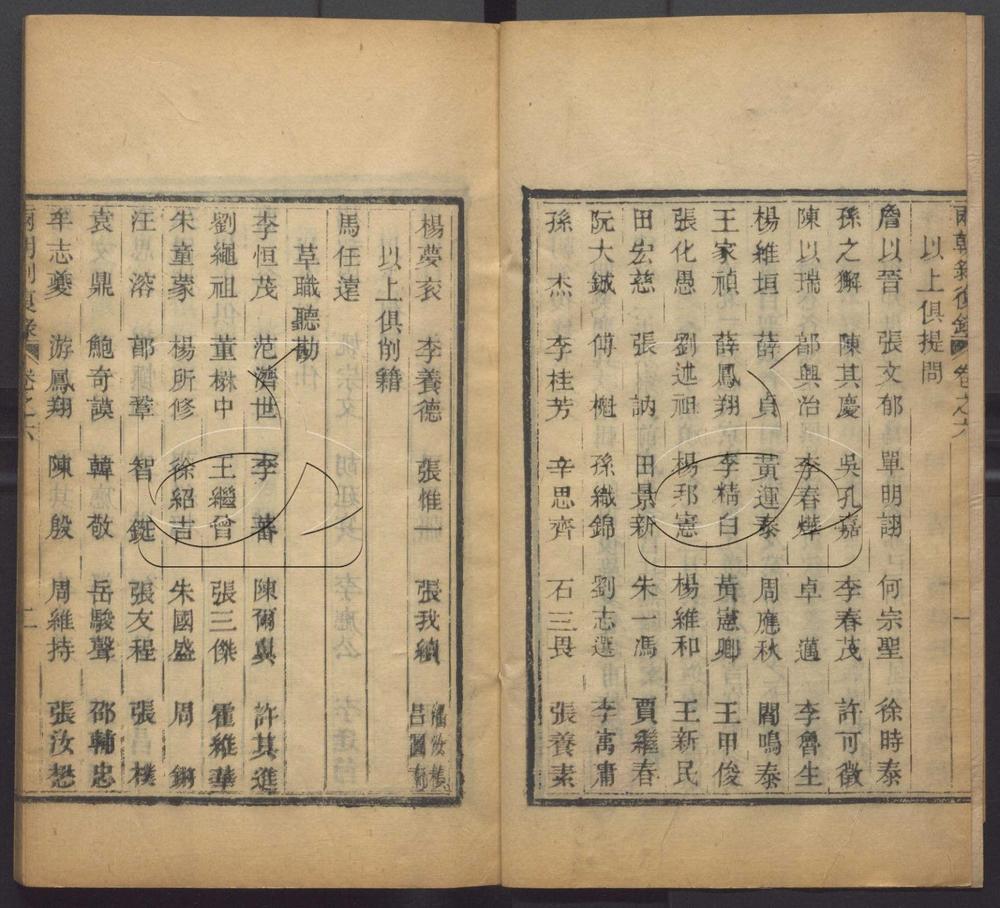 以上俱提問
詹以晉 張文郁 單明詡 何宗聖 徐時泰
孫之獬 陳其慶 吳孔嘉 李春茂 許可徵
陳以瑞 郭興治 李春燁 卓邁 李魯生
楊維垣 薛貞 黃運泰 周應秋 閻鳴泰
王家禎 薛鳳翔 李精白 黃憲卿 王甲俊
張化愚 劉述祖 楊邦憲 楊維和 王新民
田宏慈 張訥 田景新 朱一馮 賈繼春
阮大鋮 傅櫆 孫織錦 劉志選 李寓庸
孫杰 李桂芳 辛思齊 石三畏 張養素
楊夢袞 李養德 張惟一 張我續
以上俱削籍
馬任遠
草職聽勘
李恒茂 范濟世 李蕃 陳爾翼 許其進
劉繩祖 董楙中 王繼曾 張三傑 霍維華
朱童蒙 楊所修 徐紹吉 朱國盛 周鏘
汪溶 郭鞏 智鋌 張友程 張樸
袁鼎 鮑奇謨 韓敬 岳駿聲 邵輔忠
牟志夔 游鳳翔 陳殷 周維持 張汝懋
卷之六 二